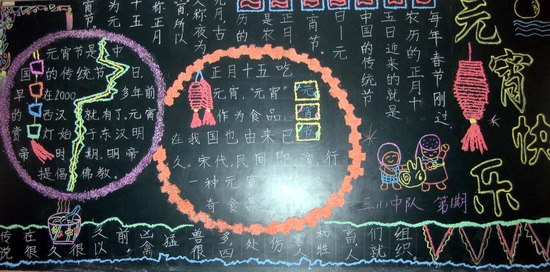 元宵快乐
每年春节刚过，
农历的正月十
五日近来的就是
中国的传统节
日—元
宵节。
正月
是农
历的
元月，古
人称夜为
宵，所以
称正月
十五为
元
元宵节是中
国的传统节日，
早在2000多年前
的西汉就有了，元宵
赏灯始于东汉明
帝时期，明帝
提倡佛教。
正月十五吃
元宵，“元宵”
作为食品，
在我国也由来已
久。宋代，民间即流行
一种元宵
奇食品。
元
宵
节
三小中队 第1期
传说在很久很久以前，凶禽猛兽很多，四处伤害人和牲畜，人们就组织